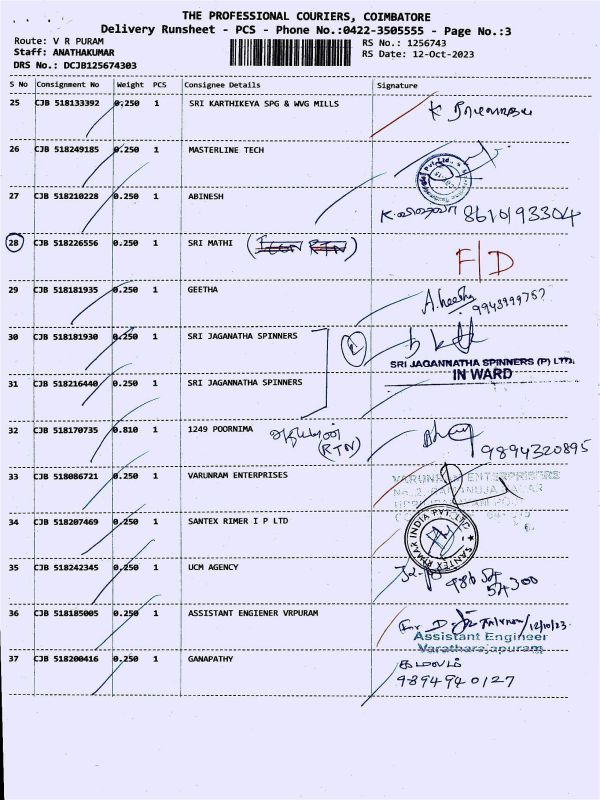 THE PROFESSIONAL COURIERS, COIMBATORE
Delivery Runsheet - PCS - Phone No.:0422-3505555 - Page No.:3
Route: V R PURAM
RS No.: 1256743
Staff: ANATHAKUMAR
RS Date: 12-Oct-2023
DRS No.: DCJB125674303
S No Consignment No Weight PCS Consignee Details Signature
25 CJB 518133392 0.250 1 SRI KARTHIKEYA SPG & WVG MILLS
26 CJB 518249185 0.250 1 MASTERLINE TECH
27 CJB 518210228 0.250 1 ABINESH 8610193304
28 CJB 518226556 0.250 1 SRI MATHI F/D
29 CJB 518181935 0.250 1 GEETHA 9943999757
30 CJB 518181930 0.250 1 SRI JAGANATHA SPINNERS 2
SRI JAGANNATHA SPINNERS (P) LTD.
IN WARD
31 CJB 518216440 0.250 1 SRI JAGANNATHA SPINNERS
32 CJB 518170735 0.810 1 1249 POORNIMA (RTN) 9894320895
33 CJB 518086721 0.250 1 VARUNRAM ENTERPRISES
VARUNRAM ENTERPRISES
34 CJB 518207469 0.250 1 SANTEX RIMER I P LTD
SANTEX RIMAR INDIA PVT. LTD
35 CJB 518242345 0.250 1 UCM AGENCY
36 CJB 518185005 0.250 1 ASSISTANT ENGIENER VRPURAM 12/10/23
Assistant Engineer
Varatharajapuram
37 CJB 518200416 0.250 1 GANAPATHY கமலம்
9894940127